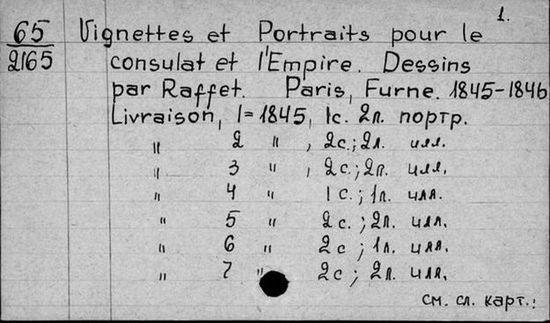 1.
65 Vignettes et Portraits pour le
2165 consulat et l'Empire. Dessins
par Raffet. Paris, Furne. 1845-1846
Livraison, 1=1845, 1с. 2л. портр.
" 2 " , 2с.; 2л. илл.
" 3 " , 2с.; 2л. илл.
" 4 " 1с.; 1л. илл.
" 5 " 2с.; 2л. илл.
" 6 " 2с; 1л. илл.
" 7 " 2с; 2л. илл.
См. сл. карт.: